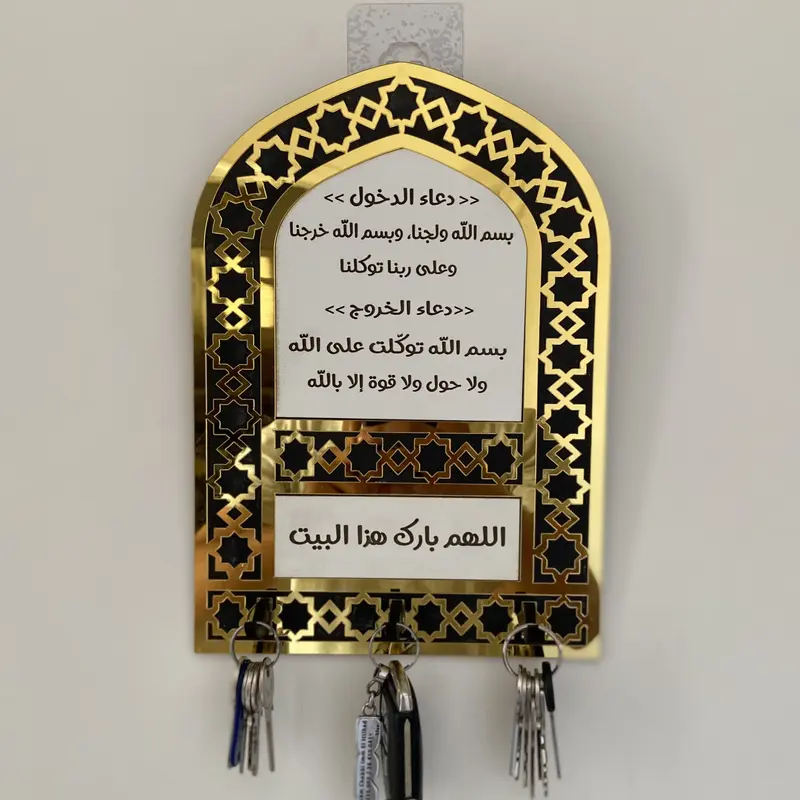 << دعاء الدخول >>
بسم الله ولجنا، وبسم الله خرجنا
وعلى ربنا توكلنا
<<دعاء الخروج>>
بسم الله توكّلت على الله
ولا حول ولا قوة إلا بالله
اللهم بارك هذا البيت